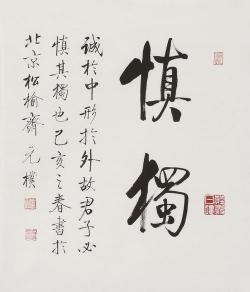 慎獨
誠於中形於外故君子必
慎其獨也己亥之春書於
北京松榆齋元樸